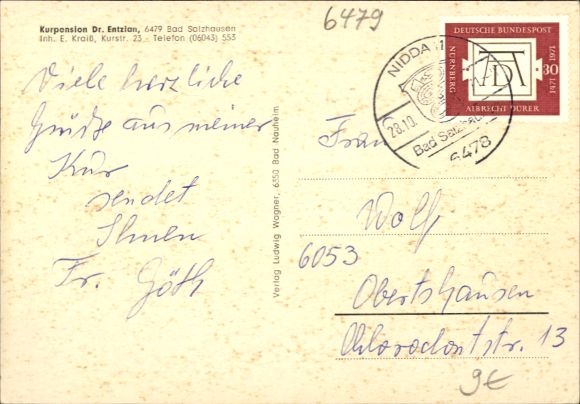 Kurpension Dr. Entzian, 6479 Bad Salzhausen
Inh. E. Kraiß, Kurstr. 23 - Telefon (06043) 553
6479
Viele herzliche
Grüße aus meiner
Kur
sendet
Ihnen
Fr. Göth
Verlag Ludwig Wagner, 6350 Bad Nauheim
DEUTSCHE BUNDESPOST
NÜRNBERG
AD
30
1471 1971
ALBRECHT DÜRER
NIDDA 1
28.10.
Bad Salzhausen
6478
Frau
Wolf
6053
Obertshausen
Chlorodontstr. 13
9€